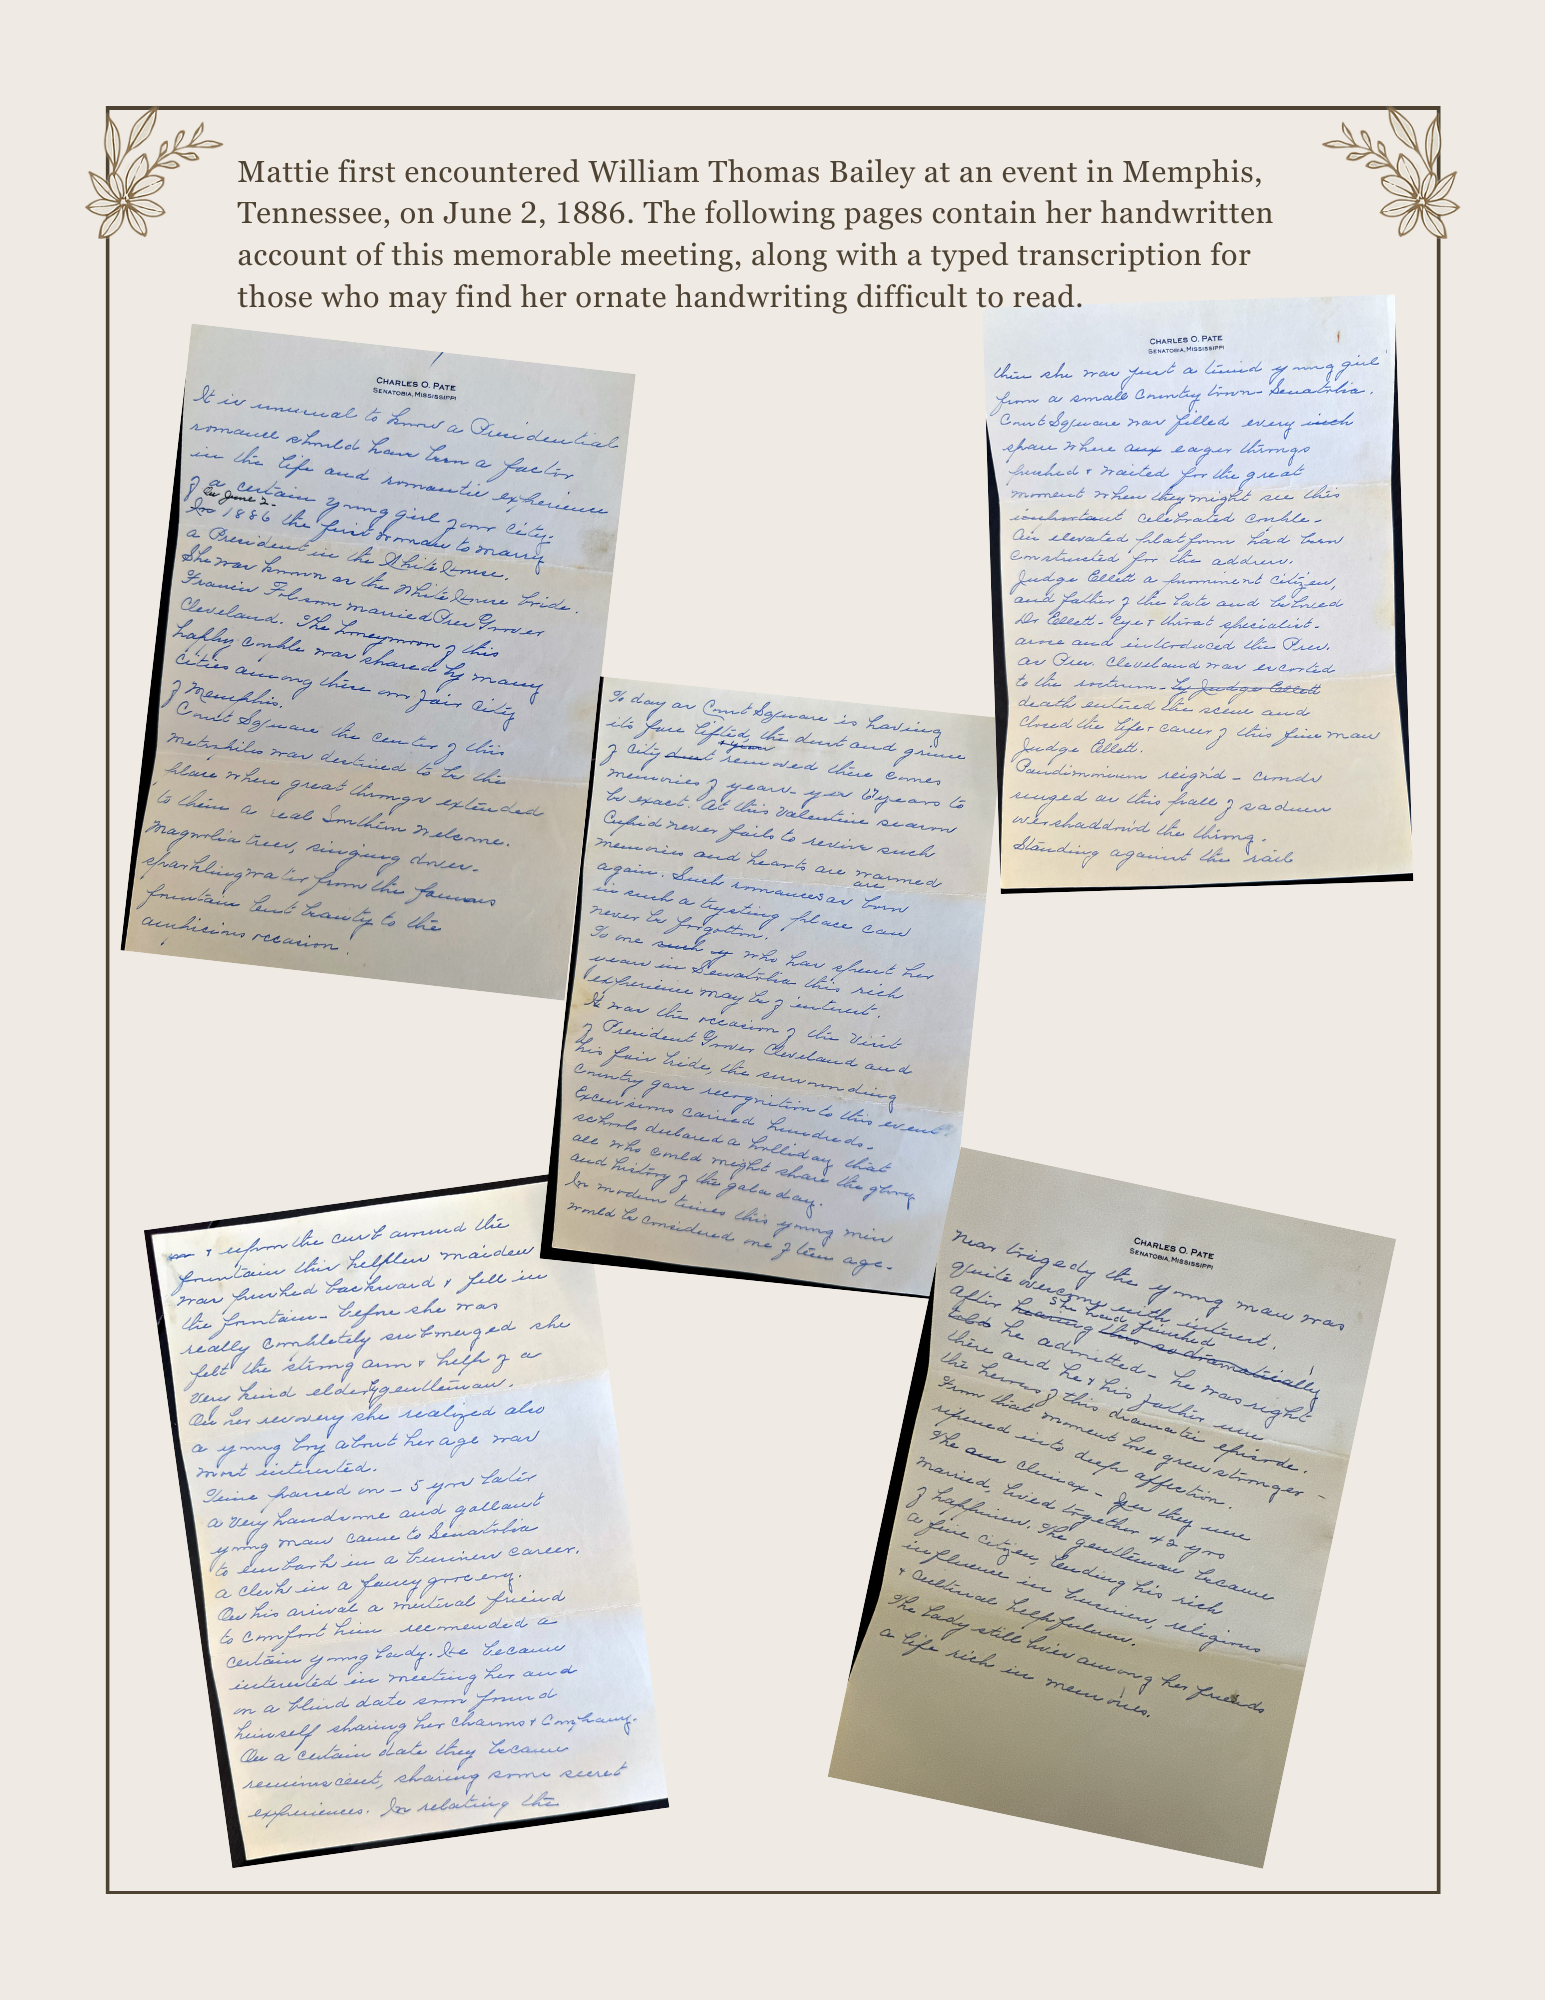 Mattie first encountered William Thomas Bailey at an event in Memphis,
Tennessee, on June 2, 1886. The following pages contain her handwritten
account of this memorable meeting, along with a typed transcription for
those who may find her ornate handwriting difficult to read.
CHARLES O. PATE
SENATOBIA, MISSISSIPPI
It is unusual to know a Presidential
romance should have been a factor
in the life and romantic experience
of a certain young girl of our city.
On June 2-
In 1886 the first woman to marry
a President in the White House.
She was known as the White House bride.
Francis Folsom married Pres Grover
Cleveland. The honeymoon of this
happy couple was shared by many
cities among them our fair city
of Memphis.
Court Square the center of this
metropolis was destined to be the
place where great throngs extended
to them a real Southern welcome.
Magnolia trees, singing doves-
sparkling water from the famous
fountain lent beauty to the
auspicious occasion.
To day as Court Square is having
its face lifted, the dust and grime
of city dust removed there comes
memories of years- yes 67 years to
be exact. At this Valentine season
Cupid never fails to revive such
memories and hearts are warmed
again. Such romances as are born
in such a trysting place can
never be forgotten.
To one such who has spent her
years in Senatobia this rich
experience may be of interest.
It was the occasion of the visit
of President Grover Cleveland and
his fair bride, the surrounding
country gave recognition to this event.
Excursions carried hundreds-
schools declared a holliday that
all who could might share the glory
and history of the gala day.
In modern times this young miss
would be considered one of teen age-
CHARLES O. PATE
SENATOBIA, MISSISSIPPI
then she was just a timid young girl
from a small country town- Senatobia.
Court Square was filled every inch
space where eager throngs
pushed & waited for the great
moment when they might see this
important celebrated couple-
An elevated platform had been
constructed for the address.
Judge Ellett a prominent citizen,
and father of the late and beloved
Dr Ellett- eye & throat specialist-
arose and introduced the Pres.
as Pres. Cleveland was escorted
to the rostrum- by Judge Ellett
death entered the scene and
closed the life & career of this fine man
Judge Ellett.
Pandimonium reign'd- crowds
surged as this pall of sadness
overshaddow'd the throng.
Standing against the rail
& upon the curb around the
fountain this helpless maiden
was pushed backward & fell in
the fountain- before she was
really completely submerged she
felt the strong arm & help of a
very kind elderly gentleman.
On her recovery she realized also
a young boy about her age was
most interested.
Time passed on- 5 yrs later
a very handsome and gallant
young man came to Senatobia
to embark in a business career.
a clerk in a fancy grocery.
On his arival a mutual friend
to comfort him recomended a
certain young lady. He became
interested in meeting her and
on a blind date soon found
himself sharing her charms & company.
On a certain date they became
reminiscent, sharing some secret
experiences. In relating the
CHARLES O. PATE
SENATOBIA, MISSISSIPPI
near tragedy the young man was
quite overcome with interest.
After hearing she had finished this so dramatically
told he admitted- he was right
there and he & his father were
the heroes of this dramatic episode.
From that moment love grew stronger-
ripened into deep affection.
The climax- Yes they were
married, lived together 42 yrs
of happiness. The gentleman became
a fine citizen, lending his rich
influence in business, religious
& cultural helpfulness.
The lady still lives among her friends
a life rich in memories.